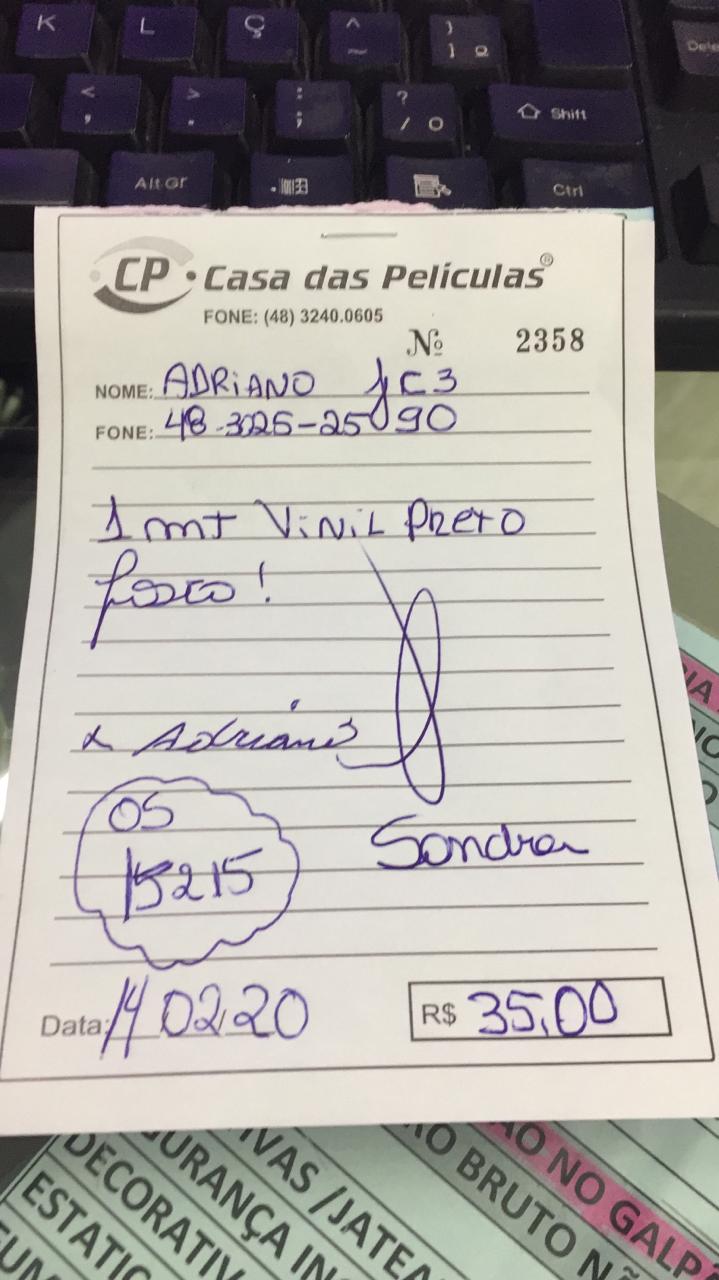 K L Ç ^ ~ } ] º Dele
< , > . : ; ? / O ⇧ Shift
Alt Gr Ctrl
CP · Casa das Películas®
FONE: (48) 3240.0605
Nº 2358
NOME: ADRIANO JC3
FONE: 48-3025-2590
1 mt Vinil Preto
fosco!
x Adriano
Sandra
OS
15215
Data: 14 02 20 R$ 35,00
IVAS /JATEA
URANÇA IN
DECORATIV
ESTATIC
ÃO NO GALPÃ
RO BRUTO N